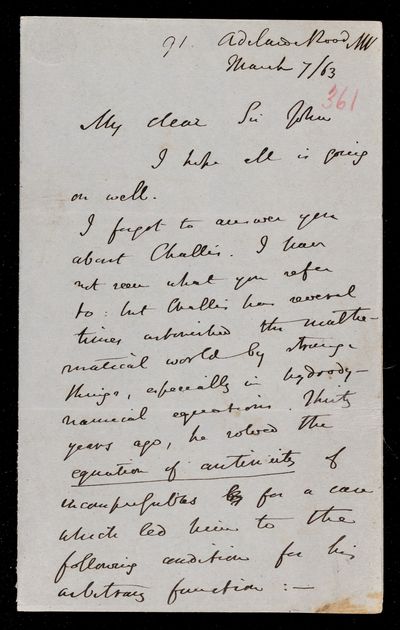 91. Adelaide Road NW
March 7/63
361
My dear Sir John
I hope all is going
on well.
I forgot to answer you
about Challis. I have
not seen what you refer
to: but Challis has several
times astonished the mathe-
matical world by strange
things, especially in hydrody-
namical equations. Thirty
years ago, he solved the
equation of continuity of
incompressibles for a case
which led him to the
following condition for his
arbitrary function :—